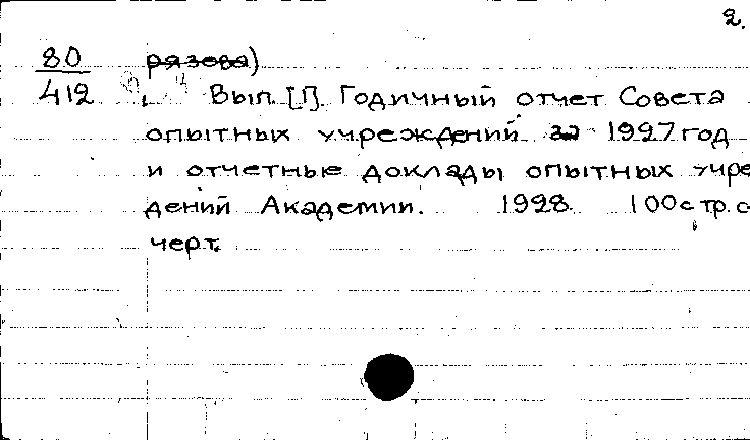 2.
80 рязева)
412 Вып. [I]. Годичный отчет Совета
опытных учреждений за 1927 год
и отчетные доклады опытных учре
дений Академии. 1928. 100 стр. с
черт.